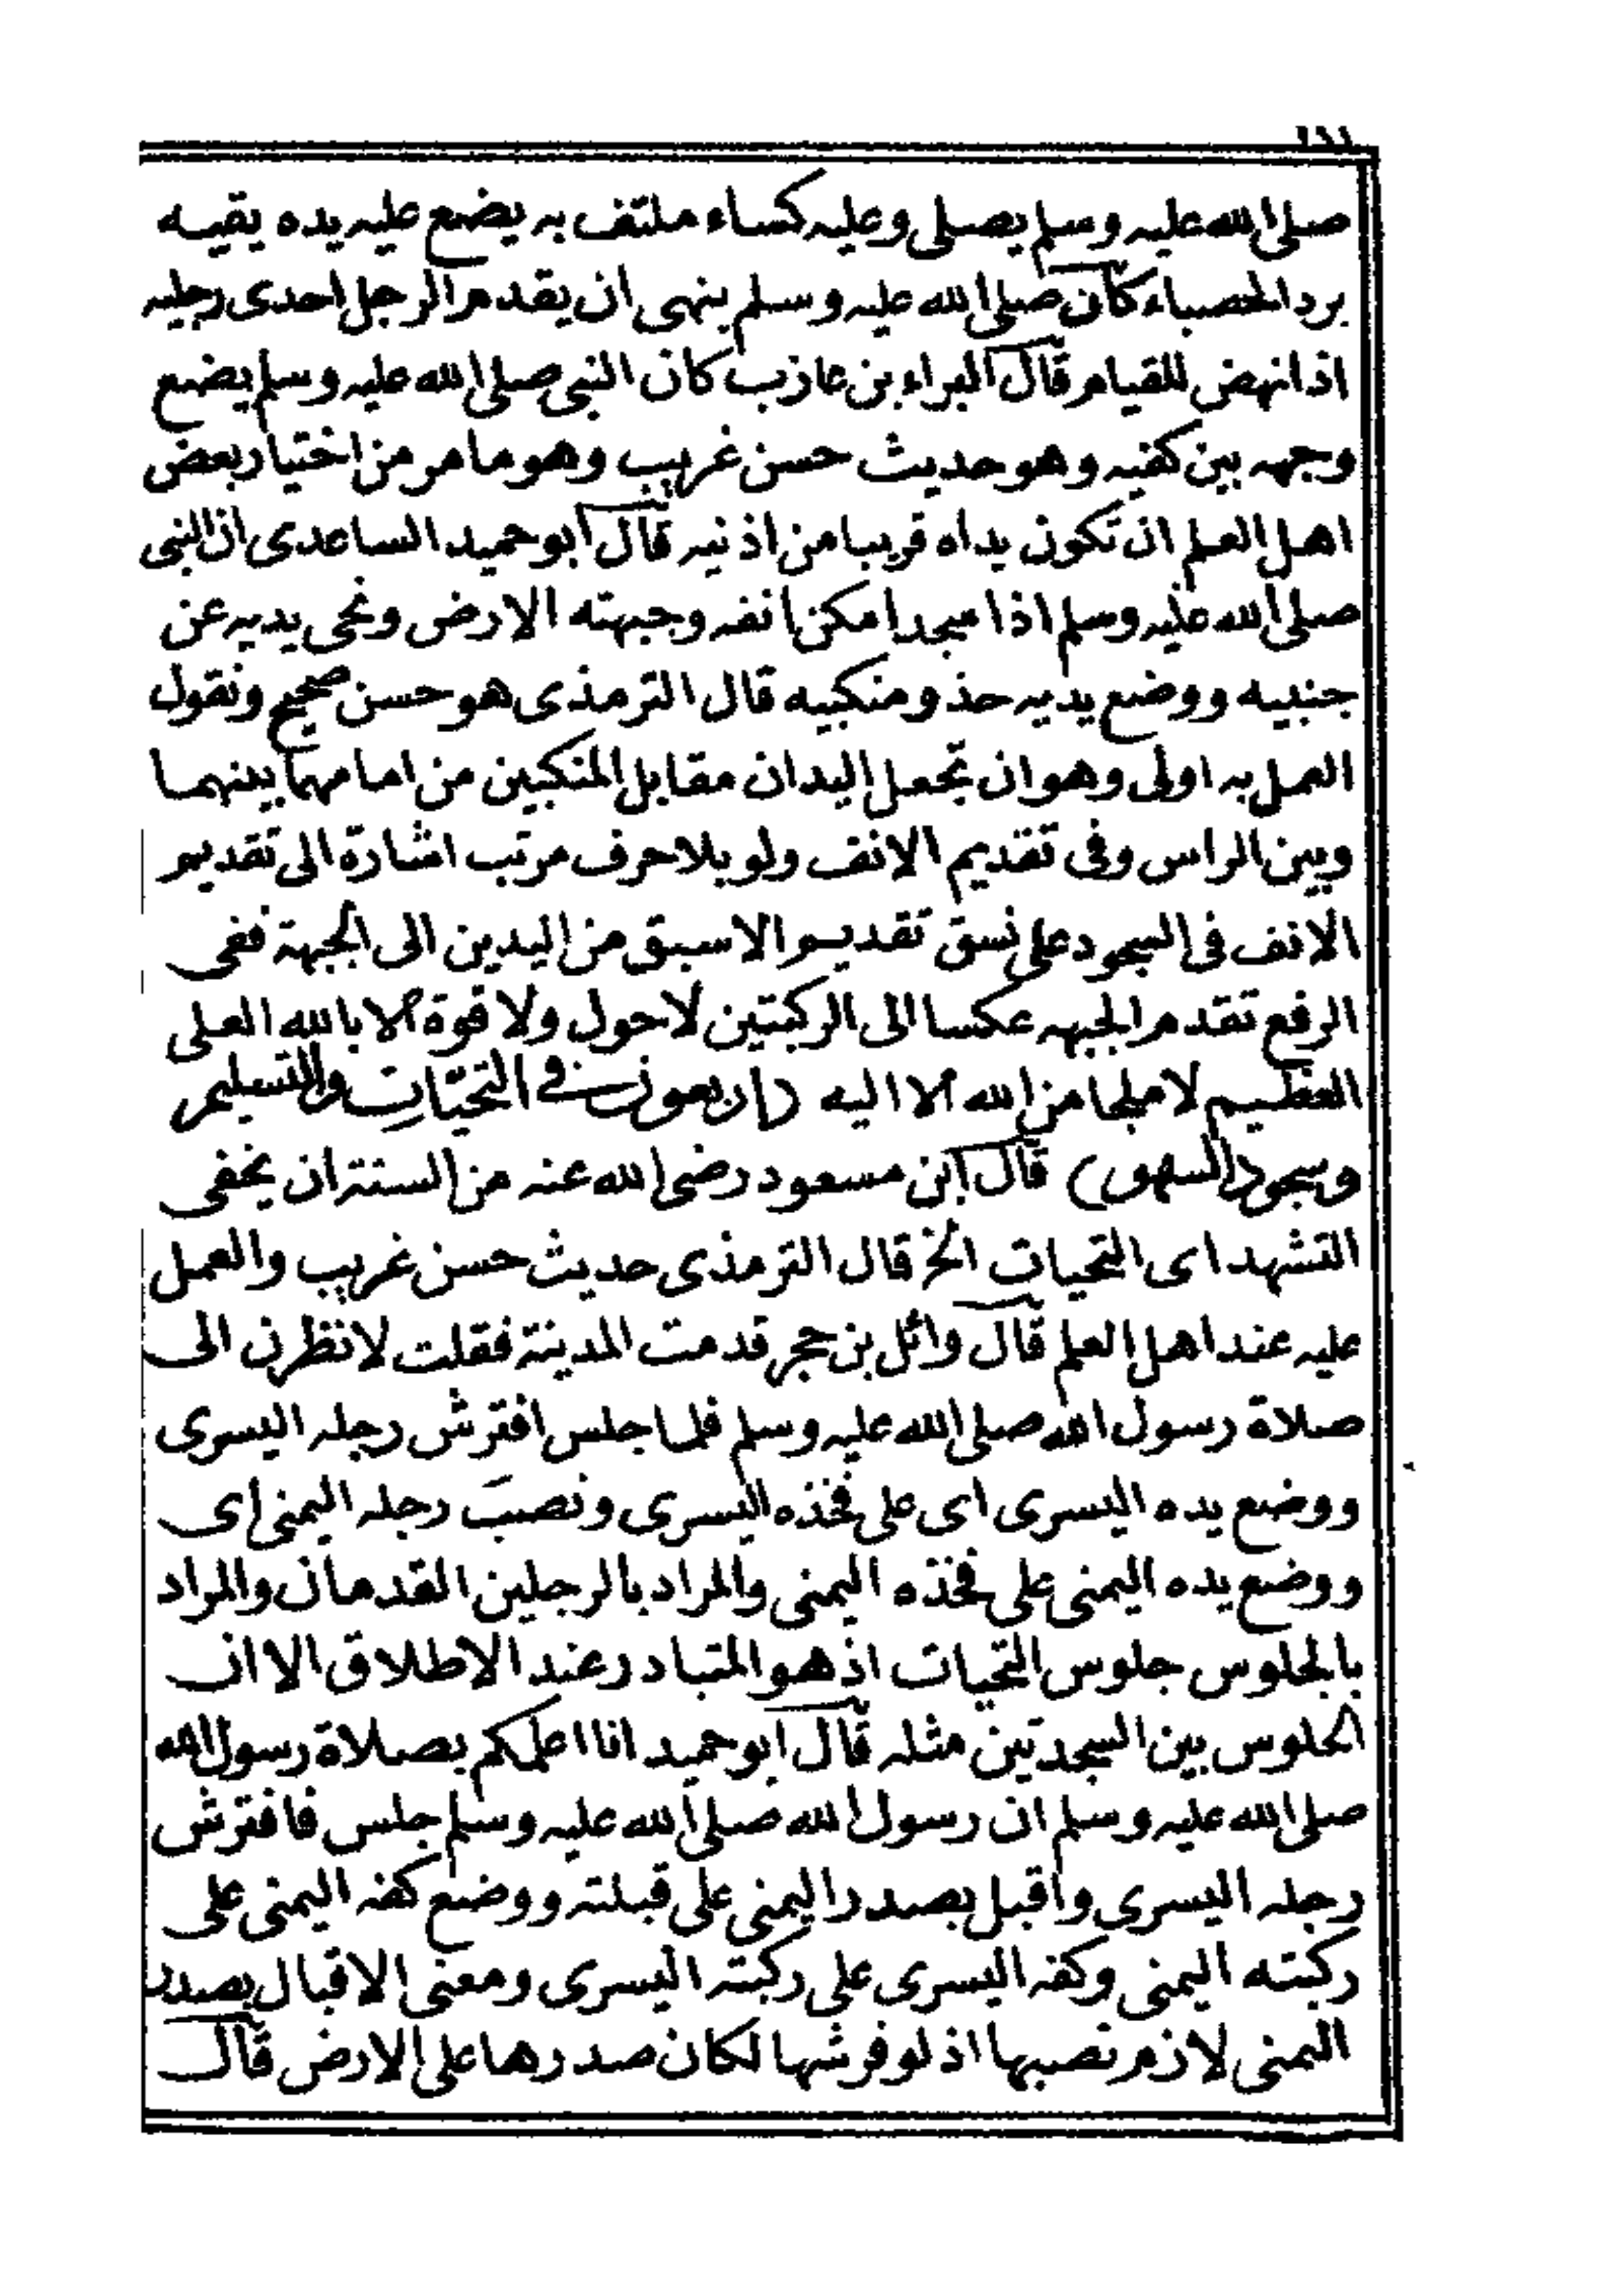 صلى الله عليه وسلم يصلى وعليه كساء ملتف به يضع عليه يده يقيه
برد الحصباء كان صلى الله عليه وسلم ينهى ان يقدم الرجل احدى رجليه
اذا نهض للقيام قال البراء بن عازب كان النبى صلى الله عليه وسلم يضع
وجهه بين كفيه وهو حديث حسن غريب وهو ما مر من اختيار بعض
اهل العلم ان تكون يداه قريبا من اذنيه قال ابو حميد الساعدى ان النبى
صلى الله عليه وسلم اذا سجد امكن انفه وجبهته الارض ونحى يديه عن
جنبيه ووضع يديه حذو منكبيه قال الترمذى هو حسن صحيح ونقول
العمل به اولى وهو ان تجعل اليدان مقابل المنكبين من امامهما بينهما
وبين الراس وفى تقديم الانف ولو بلا حرف مرتب اشارة الى تقديم
الانف فى السجود على نسق تقديم الاسبق من اليدين الى الجبهة ففى
الرفع تقدم الجبهه عكسا الى الركبتين لا حول ولا قوة الا بالله العلى
العظيم لا ملجا من الله الا اليه (اربعون فى التحيات والتسليم
وسجود السهو) قال ابن مسعود رضى الله عنه من السنة ان يخفى
التشهد اى التحيات الخ قال الترمذى حديث حسن غريب والعمل
عليه عند اهل العلم قال وائل بن حجر قدمت المدينة فقلت لانظرن الى
صلاة رسول الله صلى الله عليه وسلم فلما جلس افترش رجله اليسرى
ووضع يده اليسرى اى على فخذه اليسرى ونصب رجله اليمنى اى
ووضع يده اليمنى على فخذه اليمنى والمراد بالرجلين القدمان والمراد
بالجلوس جلوس التحيات اذ هو المتبادر عند الاطلاق الا ان
الجلوس بين السجدتين مثله قال ابو حميد انا اعلمكم بصلاة رسول الله
صلى الله عليه وسلم ان رسول الله صلى الله عليه وسلم جلس فافترش
رجله اليسرى واقبل بصدر اليمنى على قبلته ووضع كفه اليمنى على
ركبته اليمنى وكفه اليسرى على ركبته اليسرى ومعنى الاقبال بصدر
اليمنى لازم نصبها اذ لو فرشها لكان صدرها على الارض قال